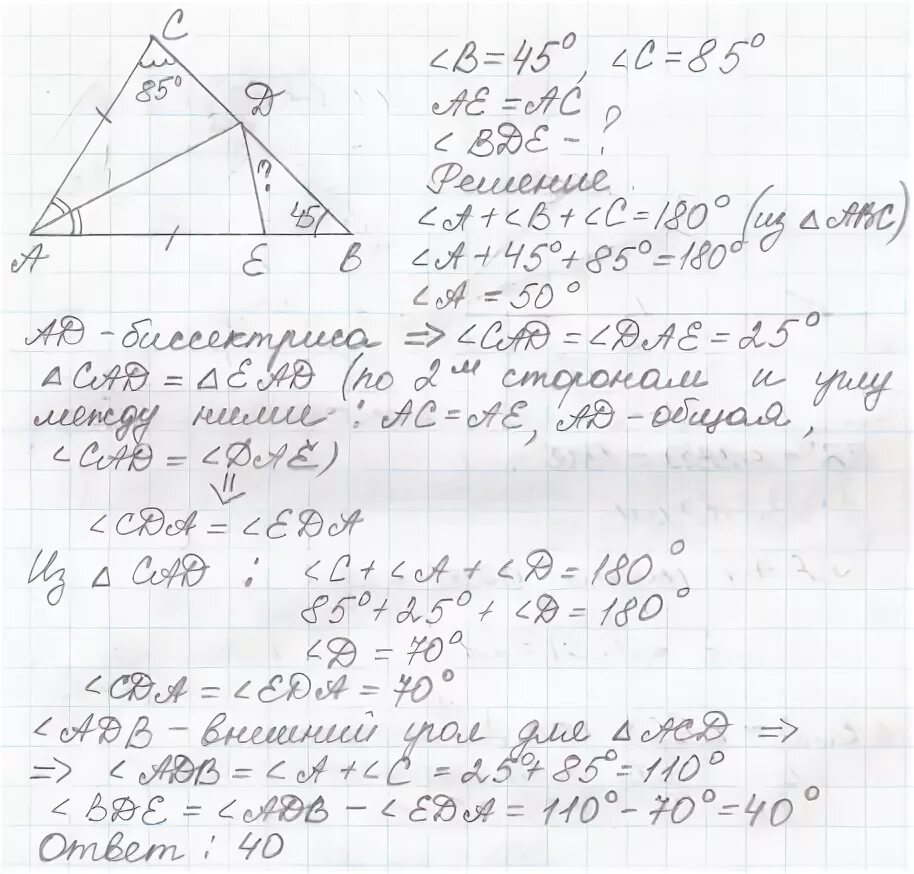 C
85°
D
?
45
A
E
B
∠B = 45°, ∠C = 85°
AE = AC
∠BDE - ?
Решение.
∠A + ∠B + ∠C = 180° (из △ABC)
∠A + 45° + 85° = 180°
∠A = 50°
AD - биссектриса => ∠CAD = ∠DAE = 25°
△CAD = △EAD (по 2м сторонам и углу
между ними: AC = AE, AD - общая,
∠CAD = ∠DAE)
⇓
∠CDA = ∠EDA
Из △CAD : ∠C + ∠A + ∠D = 180°
85° + 25° + ∠D = 180°
∠D = 70°
∠CDA = ∠EDA = 70°
∠ADB - внешний угол для △ACD =>
=> ∠ADB = ∠A + ∠C = 25° + 85° = 110°
∠BDE = ∠ADB - ∠EDA = 110° - 70° = 40°
Ответ: 40